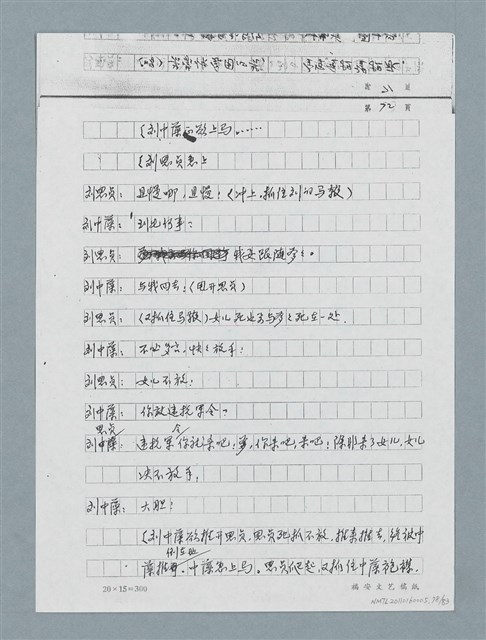 共 21 页
第 72 页
(刘中藻欲上马……
(刘思贞急上
刘思贞: 且慢啊,且慢!(冲上,抓住刘的马鞍)
刘中藻: 到此何事?
刘思贞: 我要跟随爹爹。
刘中藻: 与我回去!(甩开思贞)
刘思贞: (又抓住马鞍)女儿死也要与爹爹死在一处。
刘中藻: 不必多言,快快放手!
刘思贞: 女儿不放!
刘中藻: 你敢违抗军令?
刘思贞: 违抗军令你就杀吧!爹,你杀吧,杀吧!除非杀了女儿,女儿
决不放手。
刘中藻: 大胆!
(刘中藻欲推开思贞,思贞死抓不放,推来推去,终被中
藻推倒在地。中藻急上马。思贞爬起,又抓住中藻袍裸。
20×15=300
福安文艺稿纸